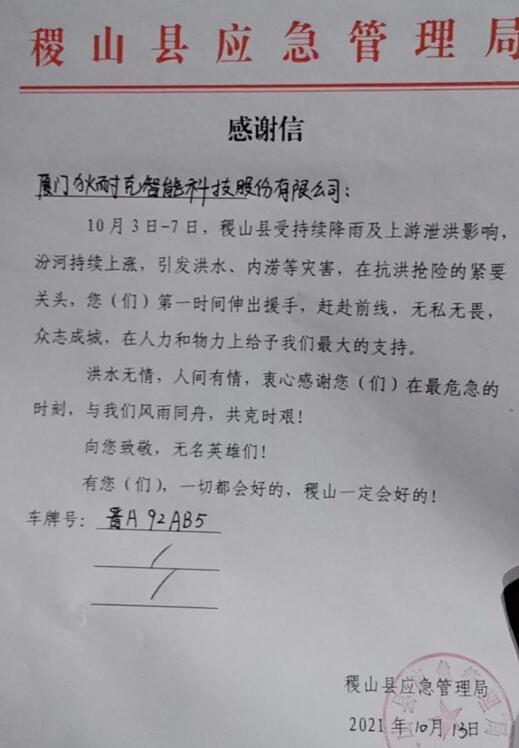 稷山县应急管理局
感谢信
厦门狄耐克智能科技股份有限公司：
10月3日-7日，稷山县受持续降雨及上游泄洪影响，
汾河持续上涨，引发洪水、内涝等灾害，在抗洪抢险的紧要
关头，您（们）第一时间伸出援手，赶赴前线，无私无畏，
众志成城，在人力和物力上给予我们最大的支持。
洪水无情，人间有情，衷心感谢您（们）在最危急的
时刻，与我们风雨同舟，共克时艰！
向您致敬，无名英雄们！
有您（们），一切都会好的，稷山一定会好的！
车牌号：晋A92AB5
稷山县应急管理局
2021年10月13日